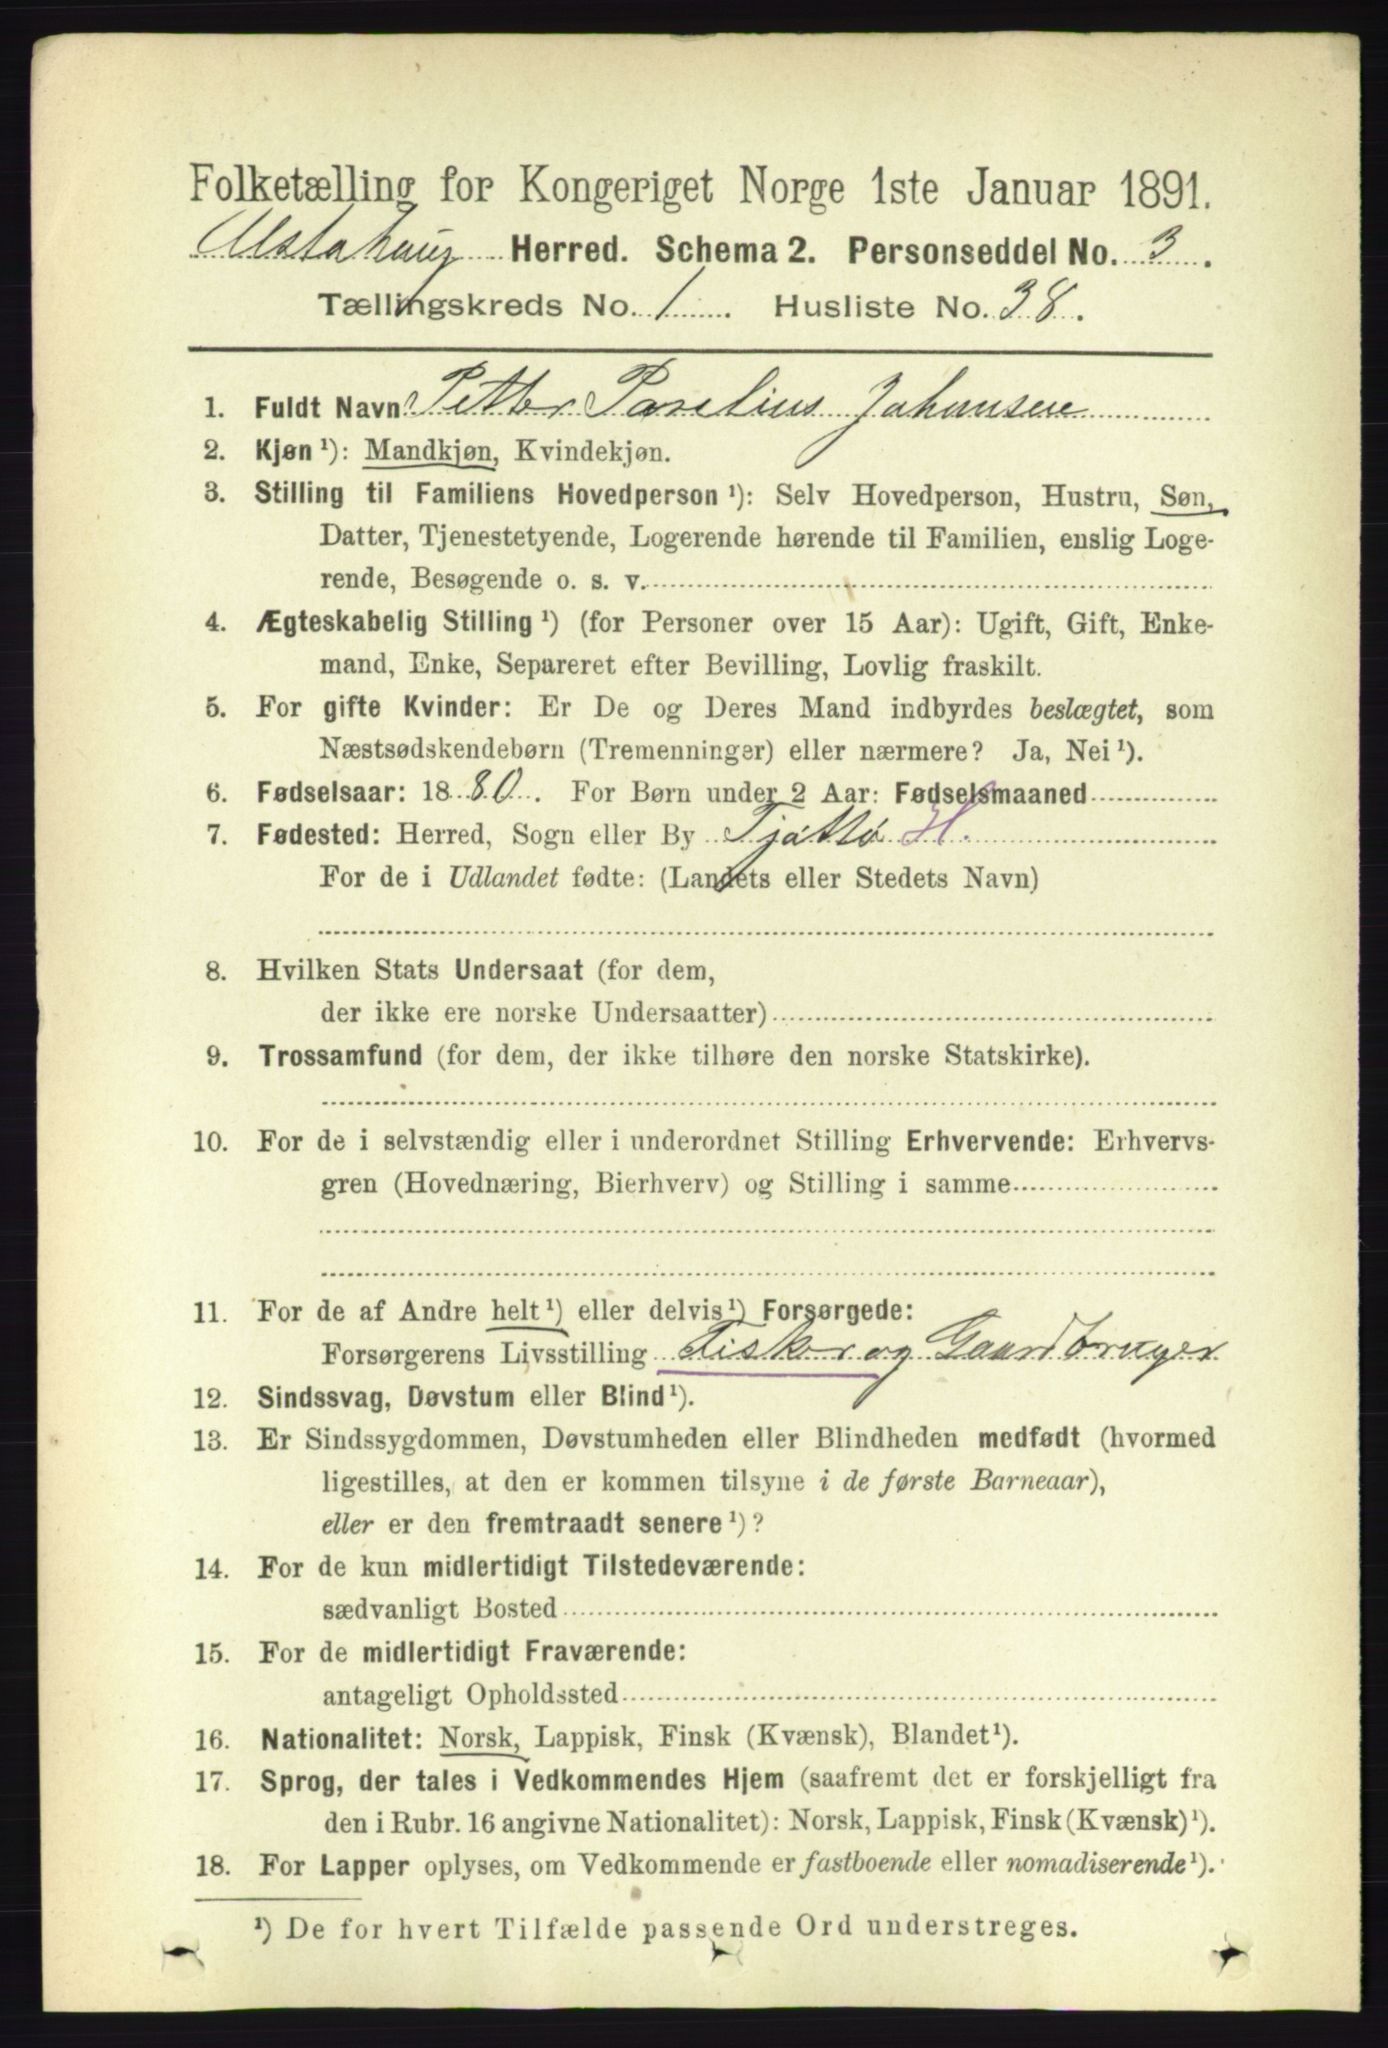 Folketælling for Kongeriget Norge 1ste Januar 1891.
Alstahaug Herred. Schema 2. Personseddel No. 3.
Tællingskreds No. 1. Husliste No. 38.
1. Fuldt Navn Petter Parelius Johansen
2. Kjøn ¹): Mandkjøn, Kvindekjøn.
3. Stilling til Familiens Hovedperson ¹): Selv Hovedperson, Hustru, Søn,
Datter, Tjenestetyende, Logerende hørende til Familien, enslig Loge-
rende, Besøgende o. s. v.
4. Ægteskabelig Stilling ¹) (for Personer over 15 Aar): Ugift, Gift, Enke-
mand, Enke, Separeret efter Bevilling, Lovlig fraskilt.
5. For gifte Kvinder: Er De og Deres Mand indbyrdes beslægtet, som
Næstsødskendebørn (Tremenninger) eller nærmere? Ja, Nei ¹).
6. Fødselsaar: 1880. For Børn under 2 Aar: Fødselsmaaned
7. Fødested: Herred, Sogn eller By Tjøttø H.
For de i Udlandet fødte: (Landets eller Stedets Navn)
8. Hvilken Stats Undersaat (for dem,
der ikke ere norske Undersaatter)
9. Trossamfund (for dem, der ikke tilhøre den norske Statskirke).
10. For de i selvstændig eller i underordnet Stilling Erhvervende: Erhvervs-
gren (Hovednæring, Bierhverv) og Stilling i samme
11. For de af Andre helt ¹) eller delvis ¹) Forsørgede:
Forsørgerens Livsstilling Fisker og Gaardbruger
12. Sindssvag, Døvstum eller Blind ¹).
13. Er Sindssygdommen, Døvstumheden eller Blindheden medfødt (hvormed
ligestilles, at den er kommen tilsyne i de første Barneaar),
eller er den fremtraadt senere ¹)?
14. For de kun midlertidigt Tilstedeværende:
sædvanligt Bosted
15. For de midlertidigt Fraværende:
antageligt Opholdssted
16. Nationalitet: Norsk, Lappisk, Finsk (Kvænsk), Blandet ¹).
17. Sprog, der tales i Vedkommendes Hjem (saafremt det er forskjelligt fra
den i Rubr. 16 angivne Nationalitet): Norsk, Lappisk, Finsk (Kvænsk) ¹).
18. For Lapper oplyses, om Vedkommende er fastboende eller nomadiserende ¹).
¹) De for hvert Tilfælde passende Ord understreges.